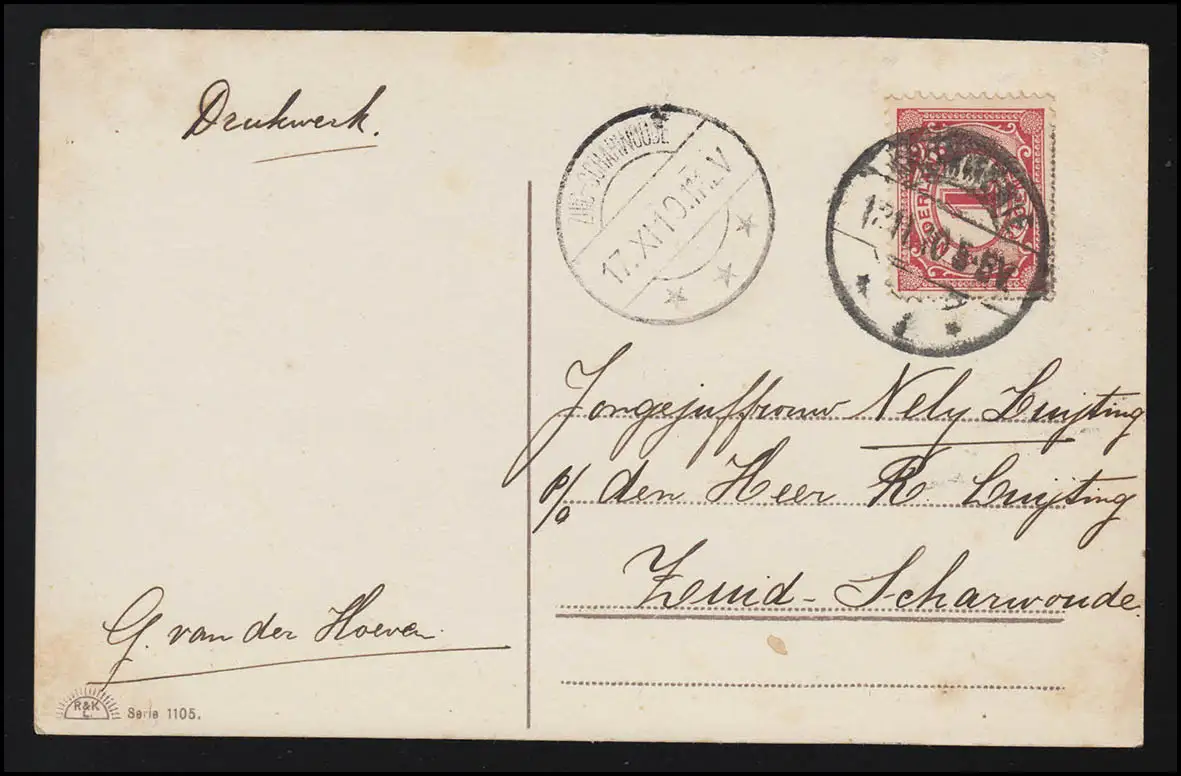 Drukwerk.
ZUID-SCHARWOUDE
17.XI 10.11-12.V
1
Jongejuffrouw Nely Luijting
p/a den Heer R. Luijting
Zuid-Scharwoude.
G. van der Hoeven.
R&K
L.
Serie 1105.